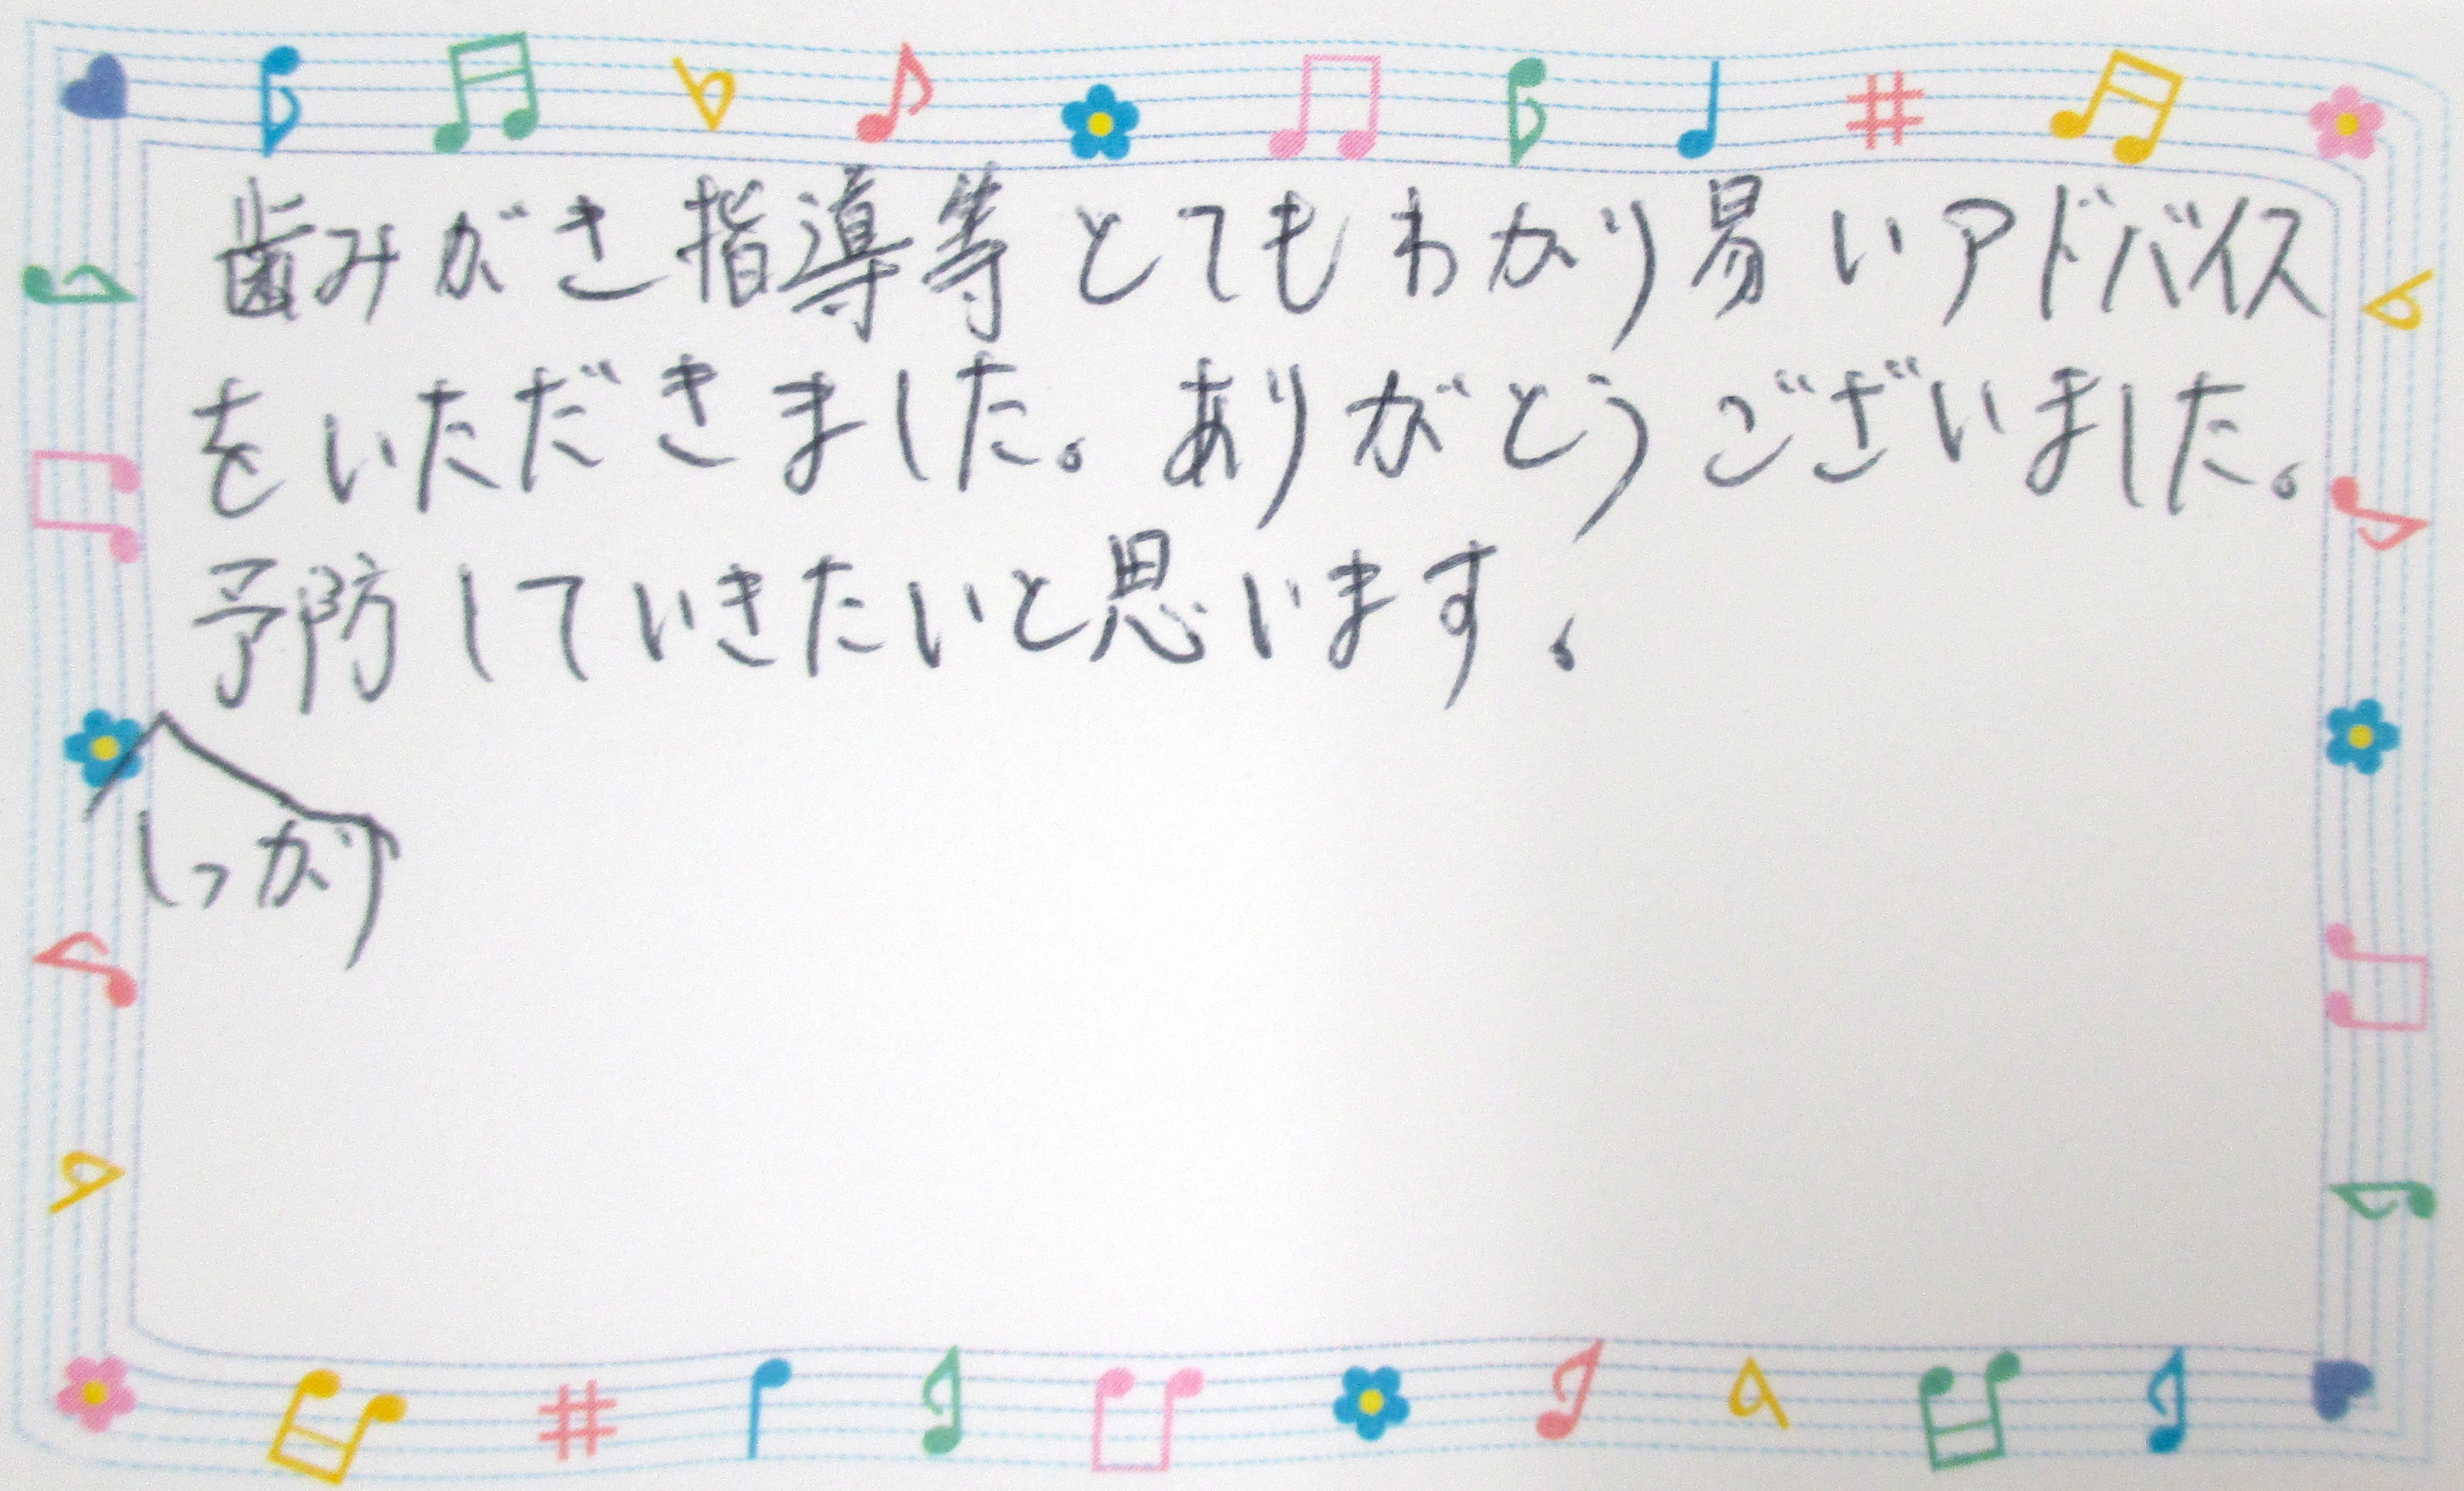 歯みがき指導等とてもわかり易いアドバイス
をいただきました。ありがとうございました。
予防していきたいと思います。
しっかり